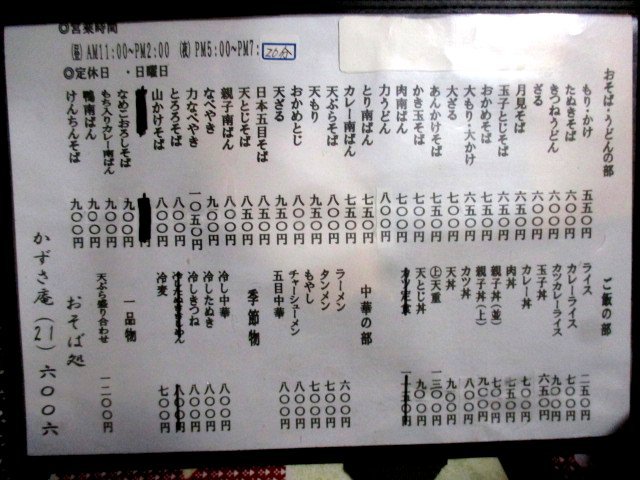 ◎営業時間
(昼)AM11:00～PM2:00 (夜)PM5:00～PM7:20分
◎定休日 ・日曜日
おそば・うどんの部
もり・かけ 五五〇円
たぬきそば 六〇〇円
きつねうどん 六〇〇円
ざる 六〇〇円
月見そば 六〇〇円
玉子とじそば 六五〇円
おかめそば 七五〇円
大もり・大かけ 六五〇円
大ざる 七〇〇円
あんかけそば 七〇〇円
かき玉そば 七〇〇円
肉南ばん 七〇〇円
力うどん 八〇〇円
とり南ばん 七五〇円
カレー南ばん 七五〇円
天ぷらそば 八〇〇円
天もり 九五〇円
おかめとじ 八〇〇円
天ざる 九五〇円
日本五目そば 八五〇円
天とじそば 八五〇円
親子南ばん 八〇〇円
なべやき 九〇〇円
力なべやき 一〇五〇円
とろろそば 八〇〇円
山かけそば 八〇〇円
なめこおろしそば 九〇〇円
もち入りカレー南ばん 九〇〇円
鴨南ばん 九〇〇円
けんちんそば 九〇〇円
ご飯の部
ライス 二五〇円
カレーライス 七〇〇円
カツカレーライス 九〇〇円
玉子丼 六五〇円
カレー丼 七〇〇円
肉丼 七五〇円
親子丼(並) 七〇〇円
親子丼(上) 九〇〇円
カツ丼 八〇〇円
天丼 九〇〇円
㊤天重 一三〇〇円
天とじ丼 九〇〇円
カツ定食
中華の部
ラーメン 六〇〇円
タンメン 七〇〇円
もやし 七〇〇円
チャーシューメン 八〇〇円
五目中華 八〇〇円
季節物
冷し中華 八〇〇円
冷したぬき 八〇〇円
冷しきつね 八〇〇円
冷麦 七〇〇円
一品物
天ぷら盛り合わせ 一二〇〇円
おそば処
かずさ庵(21)六〇〇六